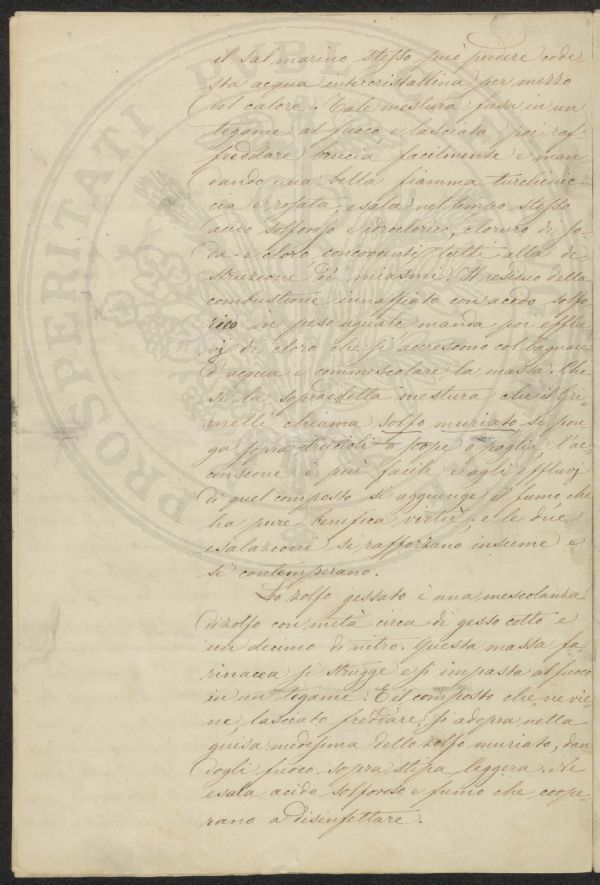 il sal marino stesso può perdere code-
sta acqua intercristallina per mezzo
del calore. Tale mestura fusa in un
tegame al fuoco e lasciata poi raf-
freddare brucia facilmente e man
dando una bella fiamma turchinic-
cia e rosata, esala nel tempo stesso
acido solforoso e idroclorico, cloruro di so-
da e cloro, concorrenti tutti alla di
struzione di miasmi. Il residuo della
combustione innaffiato con acido solfo
rico in peso uguale manda poi efflu
vj di cloro che si accrescono col bagnare
d'acqua e commescolare la massa. Che
se la sopraddetta mestura che il Gri-
melli chiama solfo muriato si pon-
ga sopra truccioli o scope o paglia, l'ac-
censione è più facile e agli effluvj
di quel composto si aggiunge il fumo che
ha pure benefica virtù; e le due
esalazioni si rafforzano insieme e
si contemperano.
Lo zolfo gessato è una mescolanza
di zolfo con metà circa di gesso cotto e
un decimo di nitro. Questa massa fa-
rinacea si strugge e si impasta al fuoco
in un tegame. E il composto che ne vie
ne, lasciato freddare, si adopra nella
guisa medesima dello zolfo muriato, dan
dogli fuoco sopra stipa leggera. Ne
esala acido solforoso e fumo che coope-
rano a disinfettare.
PROSPERITATI PUBLI